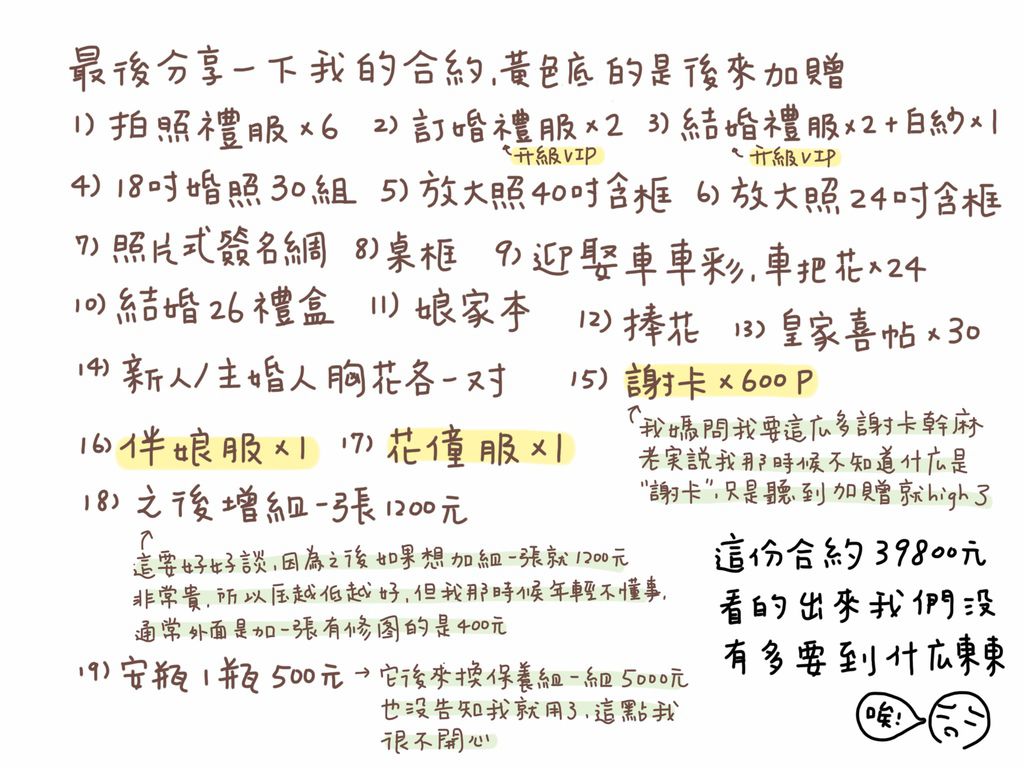 最後分享一下我的合約,黃色底的是後來加贈
1) 拍照禮服×6 2) 訂婚禮服×2 3) 結婚禮服×2+白紗×1
升級VIP 升級VIP
4) 18吋婚照30組 5) 放大照40吋含框 6) 放大照24吋含框
7) 照片式簽名綢 8) 桌框 9) 迎娶車車彩,車把花×24
10) 結婚26禮盒 11) 娘家本 12) 捧花 13) 皇家喜帖×30
14) 新人/主婚人胸花各一対 15) 謝卡×600P
我媽問我要這広多謝卡幹麻
16) 伴娘服×1 17) 花僮服×1
老実說我那時候不知道什広是
"謝卡",只是聽到加贈就high了
18) 之後增組一張1200元
這要好好談,因為之後如果想加組一張就1200元
非常貴,所以压越低越好,但我那時候年輕不懂事,
通常外面是加一張有修图的是400元
19) 安瓶1瓶500元→它後來換保養組一組5000元
也沒告知我就用了,這點我
很不開心
這份合約39800元
看的出來我們沒
有多要到什広東東
唉!